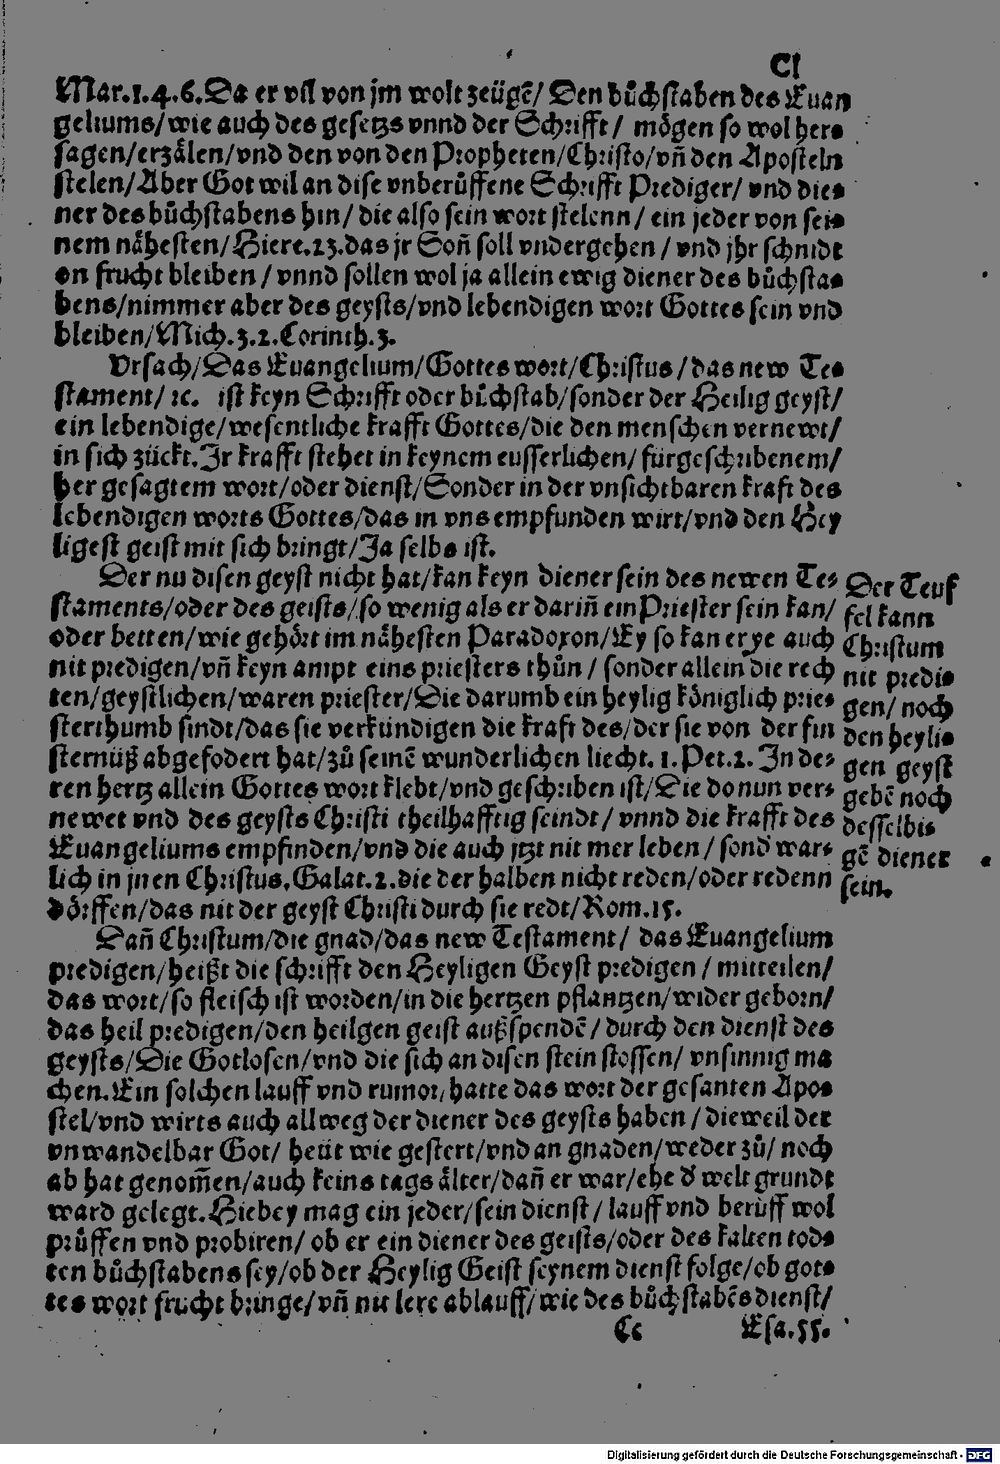 CI
Mar.1.4.6.Da er vil von jm wolt zeügē/ Den bůchstaben des Euan
geliums/wie auch des gesetzs vnnd der Schrifft/ mögen so wol hers
sagen/erzälen/vnd den von den Propheten/Christo/vñ den Aposteln
stelen/Aber Got wil an dise vnberůffene Schrifft Prediger/ vnd die=
ner des bůchstabens hin/ die also sein wort stelenn/ ein jeder von sei=
nem nähesten/Hiere.23.das jr Soñ soll vndergehen/ vnd jhr schnidt
on frucht bleiben/ vnnd sollen wol ja allein ewig diener des bůchsta=
bens/nimmer aber des geysts/vnd lebendigen wort Gottes sein vnd
bleiben/Mich.3.2.Corinth.3.
Vrsach/Das Euangelium/Gottes wort/Christus/das new Te=
stament/ ꝛc. ist keyn Schrifft oder bůchstab/sonder der Heilig geyst/
ein lebendige/wesentliche krafft Gottes/die den menschen vernewt/
in sich zückt.Jr krafft stehet in keynem eusserlichen/ fürgeschribenem/
her gesagtem wort/oder dienst/Sonder in der vnsichtbaren kraft des
lebendigen worts Gottes/das in vns empfunden wirt/vnd den Hey
ligest geist mit sich bringt/Ja selbs ist.
Der nu disen geyst nicht hat/kan keyn diener sein des newen Te=
staments/oder des geists/so wenig als er dariñ ein Priester sein kan/
oder betten/wie gehört im nähesten Paradoxon/Ey so kan er ye auch
nit predigen/vñ keyn ampt eins priesters thůn/ sonder allein die rech
ten/geystlichen/waren priester/Die darumb ein heylig königlich prie=
sterthumb sindt/das sie verkündigen die kraft des/der sie von der fin
sternüß abgefodert hat/zů seinē wunderlichen liecht. 1. Pet.2. In de=
ren hertz allein Gottes wort klebt/vnd geschriben ist/Die do nun ver=
newet vnd des geysts Christi theilhafftig seindt/ vnnd die krafft des
Euangeliums empfinden/vnd die auch jtzt nit mer leben/ sond' war=
lich in jnen Christus.Galat.2.die der halben nicht reden/oder redenn
dörffen/das nit der geyst Christi durch sie redt/Rom.15.
Dañ Christum/die gnad/das new Testament/ das Euangelium
predigen/heißt die schrifft den Heyligen Geyst predigen/ mitteilen/
das wort/so fleisch ist worden/in die hertzen pflantzen/wider geborn/
das heil predigen/den heilgen geist außspendē/ durch den dienst des
geysts/Die Gotlosen/vnd die sich an disen stein stossen/ vnsinnig ma
chen.Ein solchen lauff vnd rumor/hatte das wort der gesanten Apos
stel/vnd wirts auch allweg der diener des geysts haben/ dieweil der
vnwandelbar Got/ heüt wie gestert/vnd an gnaden/weder zů/ noch
ab hat genom̄en/auch keins tags älter/dañ er war/ehe d' welt grundt
ward gelegt.Hiebey mag ein jeder/sein dienst/ lauff vnd berůff wol
prüffen vnd probiren/ ob er ein diener des geists/oder des kalten tod=
ten bůchstabens sey/ob der Heylig Geist seynem dienst folge/ob got=
tes wort frucht bringe/vñ nit lere ablauff/wie des bůchstabēs dienst/
Cc Esa.55.
Der Teuf
fel kann
Christum
nit predi=
gen/ noch
den heyli=
gen geyst
gebē noch
desselbi=
gē diener
sein.
Digitalisierung gefördert durch die Deutsche Forschungsgemeinschaft - DFG